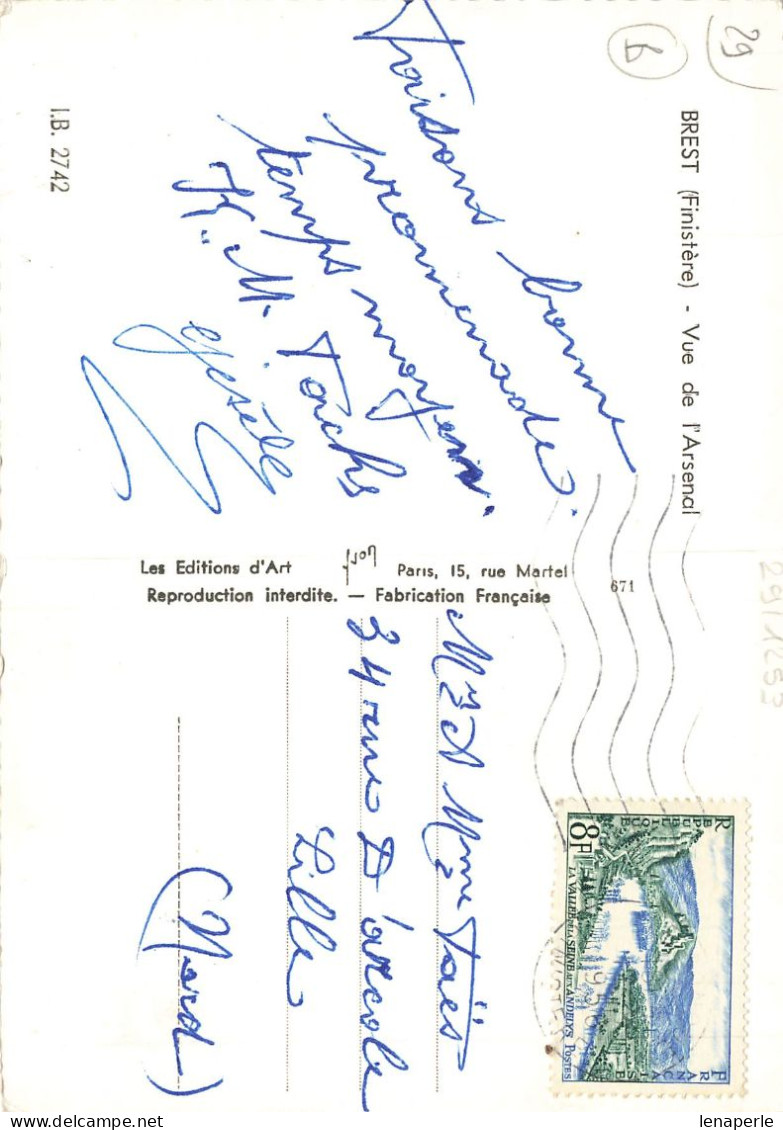 BREST (Finistère) - Vue de l'Arsenal
29
B
Faisons bonne
promenade.
temps moyen.
K. M. Taichs
Gisèle
I.B. 2742
Les Editions d'Art yvon Paris, 15, rue Martel
Reproduction interdite. — Fabrication Française
671
291253
Mr et Mme Taës
34 rue D'arcole
Lille
(Nord)
REPUBLIQUE FRANÇAISE
8F
LA VALLEE DE LA SEINE AUX ANDELYS POSTES
lenaperle